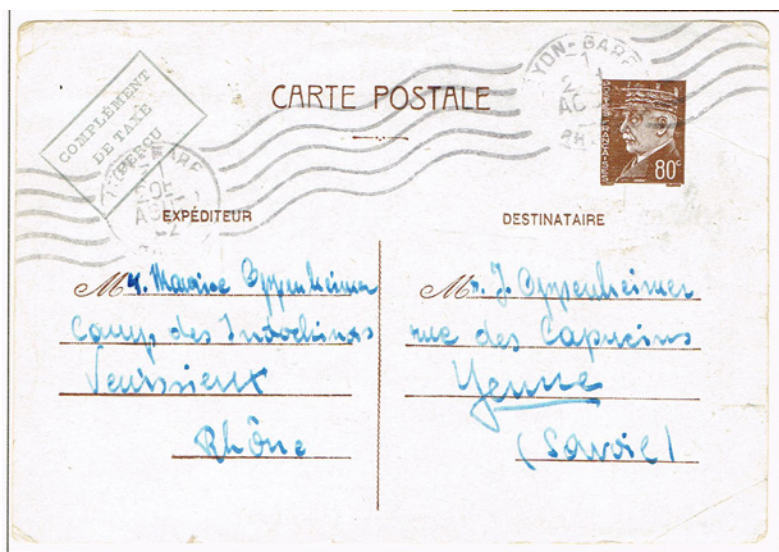 CARTE POSTALE
COMPLÉMENT
DE TAXE
PERÇU
LYON-GARE
POSTES FRANÇAISES
80c
EXPÉDITEUR
Mr. Maurice Oppenheimer
Camp des Indochinois
Venissieux
Rhône
DESTINATAIRE
Mr. J. Oppenheimer
rue des Capucins
Yenne
(Savoie)